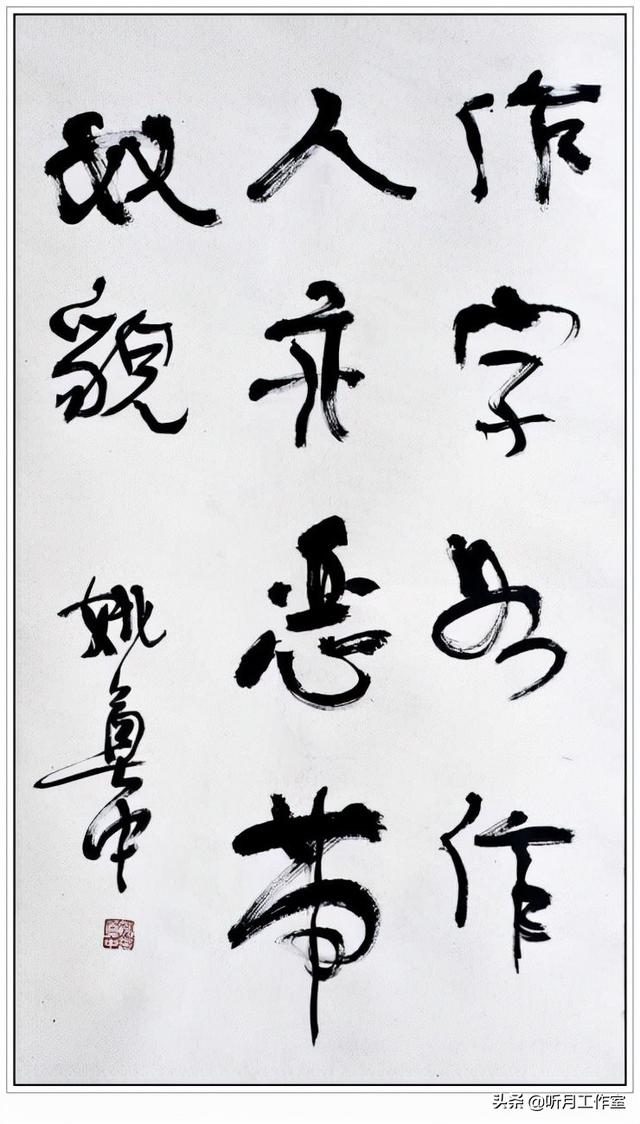 作字如作
人亦恶带
奴貌
姚奠中
头条 @听月工作室